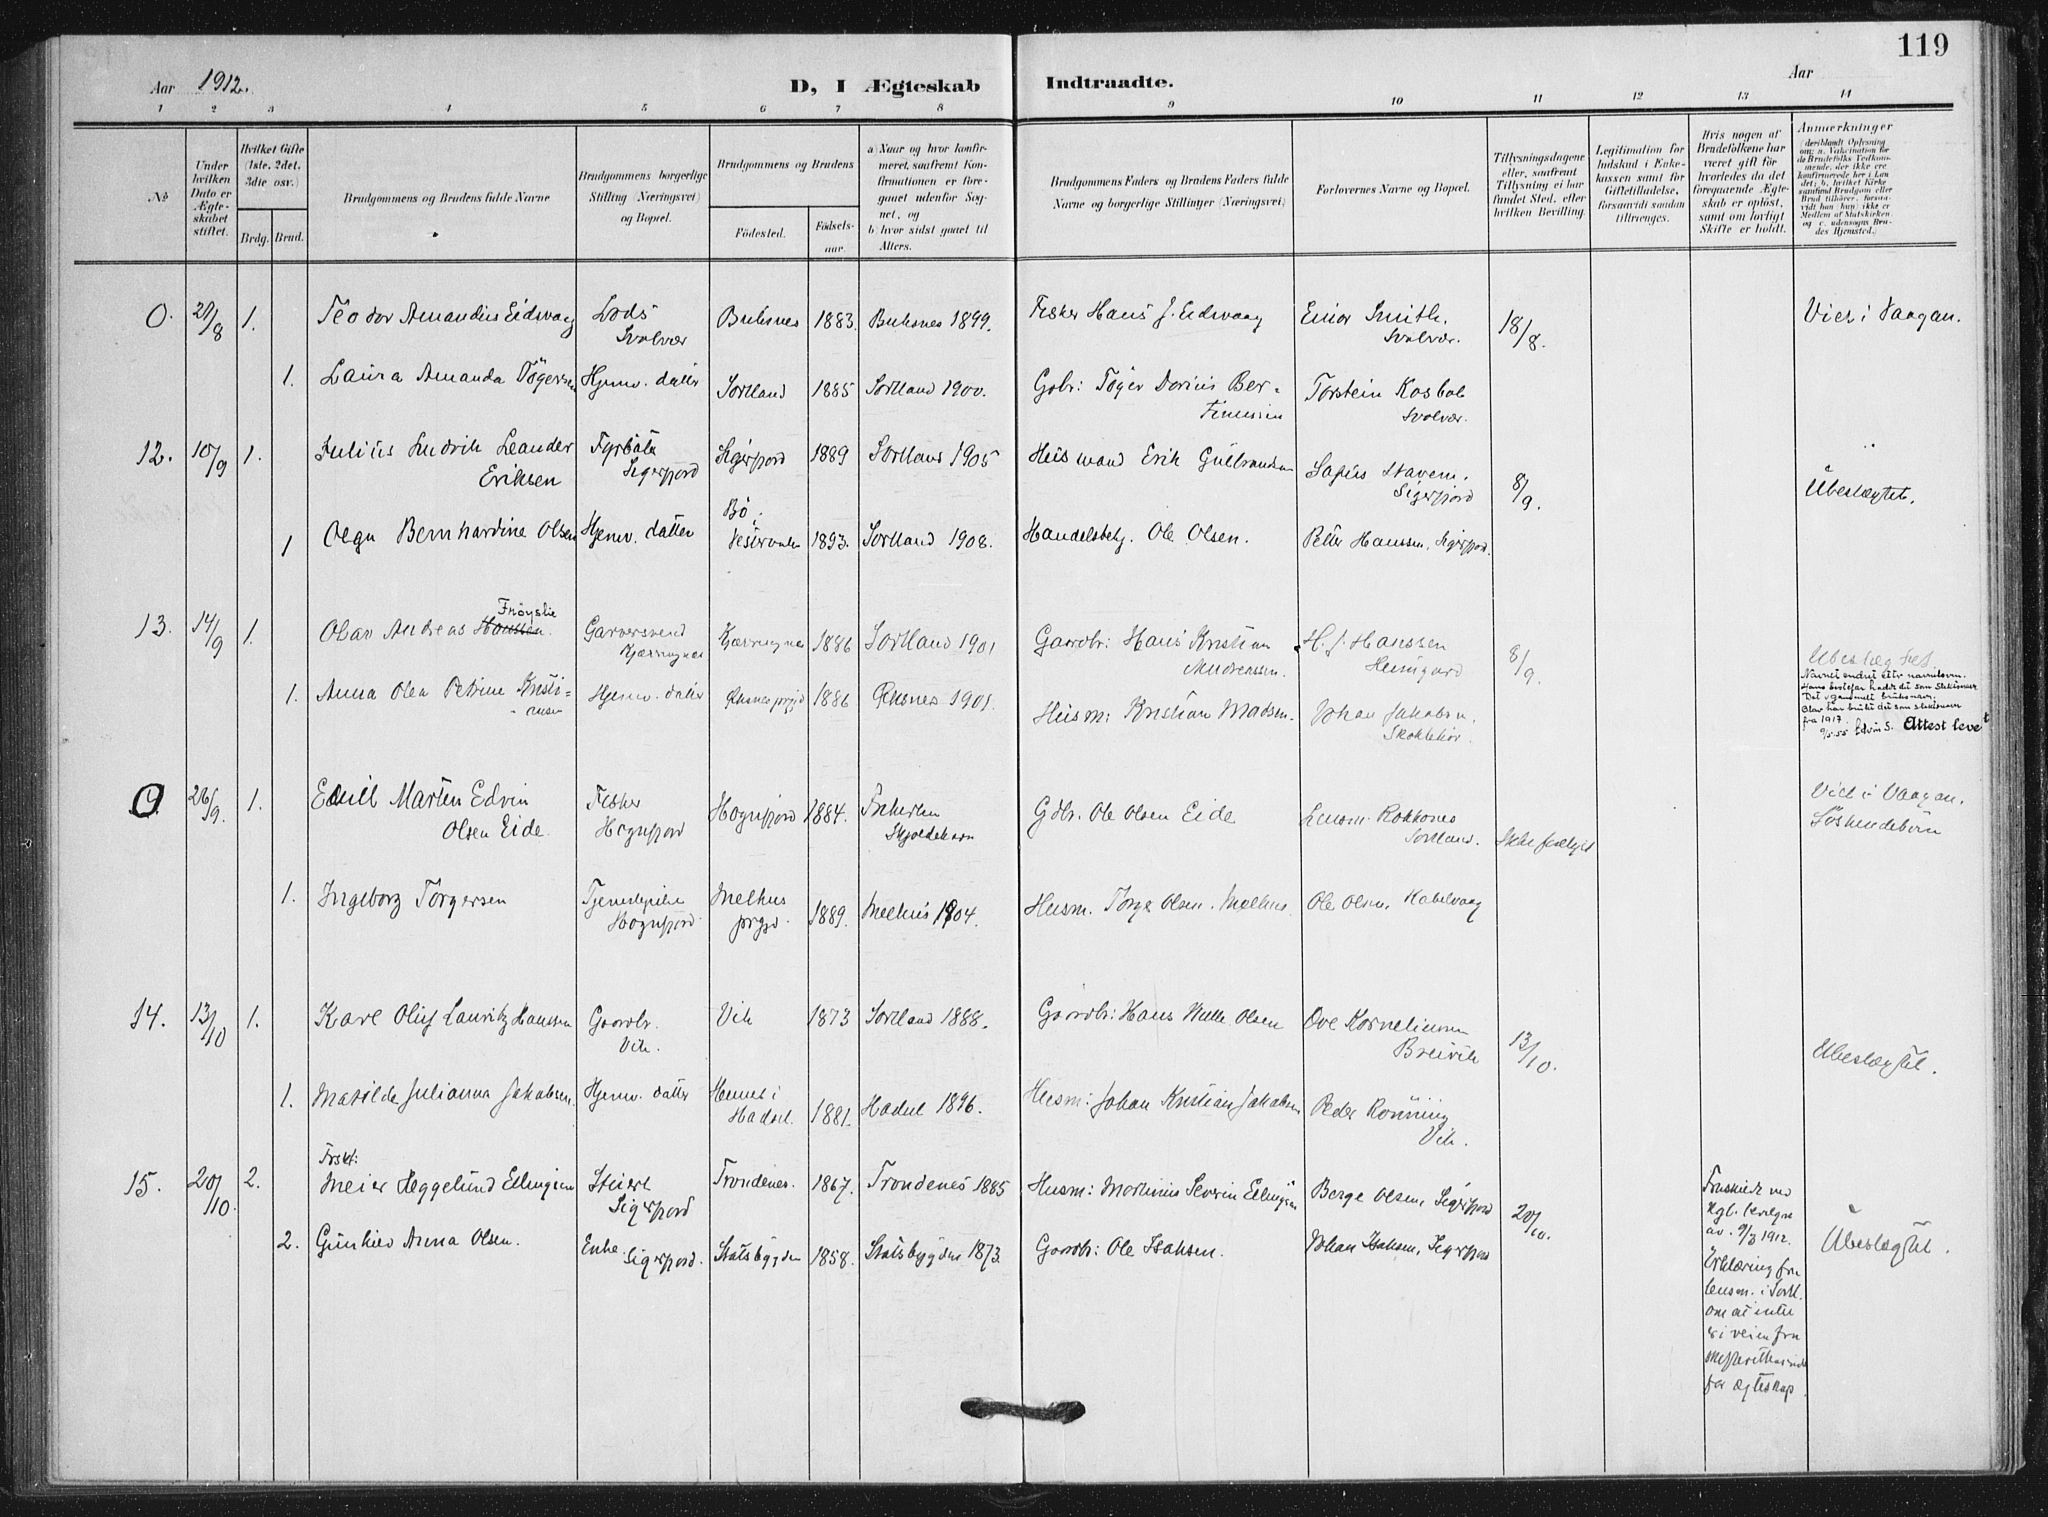 119
Aar 1912.
D, I Ægteskab Indtraadte.
Aar
1 2 3 4 5 6 7 8 9 10 11 12 13 14
No
Under hvilken Dato er Ægteskabet stiftet.
Hvilket Gifte (1ste, 2det, 3die osv.)
Brdg. Brud.
Brudgommens og Brudens fulde Navne
Brudgommens borgerlige Stilling (Næringsvei) og Bopæl.
Brudgommens og Brudens
Fødested.
Fødselsaar.
a) Naar og hvor konfirmeret, saafremt Konfirmationen er foregaaet udenfor Sognet, og
b) hvor sidst gaaet til Alters.
Brudgommens Faders og Brudens Faders fulde Navne og borgerlige Stillinger (Næringsvei)
Forlovernes Navne og Bopæl.
Tillysningsdagene eller, saafremt Tillysning ei har fundet Sted, efter hvilken Bevilling.
Legitimation for Indskud i Enkekassen samt for Giftetilladelse, forsaavidt saadan tiltrenges.
Hvis nogen af Brudefolkene har været gift før hvorledes da det foregaaende Ægteskab er opløst, samt om lovligt Skifte er holdt.
Anmærkninger
(deriblandt Oplysning om: a. Vakcination for de Brudefolks Vedkommende, der ikke ere konfirmerede her i Landet; b. hvilket Kirkesamfund Brudgom eller Brud tilhører, forsaavidt han (hun) ikke er Medlem af Statskirken, og c. udensogns Brudes Hjemsted.)
0. 21/8 1. Teodor Amandius Eidsvaag Lods Svolvær Buksnes 1883. Buksnes 1899. Fisker Hans J. Eidsvaag Einar Smith. Svolvær. 18/8. Viet i Vaagan.
1. Laura Amanda Tøgersen Hjemv. datter Sortland 1885 Sortland 1900. Gbr: Tøger Dorius Bertinussen Torstein Kosbak Svolvær.
12. 10/9 1. Julius Ludvik Leander Eriksen Fyrbøter Sigerfjord Sigerfjord 1889 Sortland 1905 Husmand Erik Gulbrandsen Stavem, Sigerfjord 8/9. Ubeslægtet.
1 Olga Bernhardine Olsen Hjemv. datter Bø, Vesteraalen 1893. Sortland 1908. Handelsbetj. Ole Olsen. Petter Hanssen, Sigerfjord.
13. 14/9 1. Olav Andreas Hanssen. Frøyslie Garversvend Kjærringnes Kjærringnes 1886 Sortland 1901 Gaardbr: Hans Kristian Andreassen. H. J. Hanssen 8/9. Ubeslægtet.
Navnet endret etter navneloven.
Hans bestefar hadde det som slektsnavn
Det er gammelt bruksnavn.
Olav har brukt det som slektsnavn
fra 1917.
9/5-55 Edvin S. Attest levet
1. Anna Olea Petrine Kristiansen Hjemv. datter Øksnes prgjd 1886 Øksnes 1901. Husm: Kristian Madsen. Johan Jakobsen.
0. 26/9. 1. Edvin Olsen Eide. Fisker Hognfjord Hognfjord 1884. Gdbr. Ole Olsen Eide Lensm. Rokkones Sortland. Viet i Vaagan.
1. Ingeborg Torgersen Tjenestepike Hognfjord. Melhus prgjd. 1889. Melhus 1904. Husm. Torger Olsen. Melhus. Ole Olsen, Kabelvaag
14. 13/10 1. Karl Oluf Lauritz Hanssen Gaardbr. Vik. Vik 1873 Sortland 1888. Gaardbr: Hans Olsen Ove Korneliussen Breivik 13/10. Ubeslægtet.
1. Matilde Julianna Jakobsen. Hjemv. datter Hennes i Hadsel. 1881. Hadsel 1896. Husm: Johan Kristian Jakobsen Peder Rønning Vik.
15. 20/10. 2. Frskt: Meier Heggelund Ellingsen Sigerfjord Trondenes. 1867. Trondenes 1885 Husm: Mortinius Severin Ellingsen Berge Olsen, Sigerfjord 20/10. Ubeslægtet.
Fraskildt ved
Kgl. av. 9/3 1912.
Erklæring fra
lensm. i Sortl.
om at intet
er i veien fra
for ægteskap.
2. Gunhild Anna Olsen. Enke. Sigerfjord. Statsbygden 1858. Statsbygden 1873. Gaardbr: Ole Isaksen. Johan Isaksen, Sigerfjord